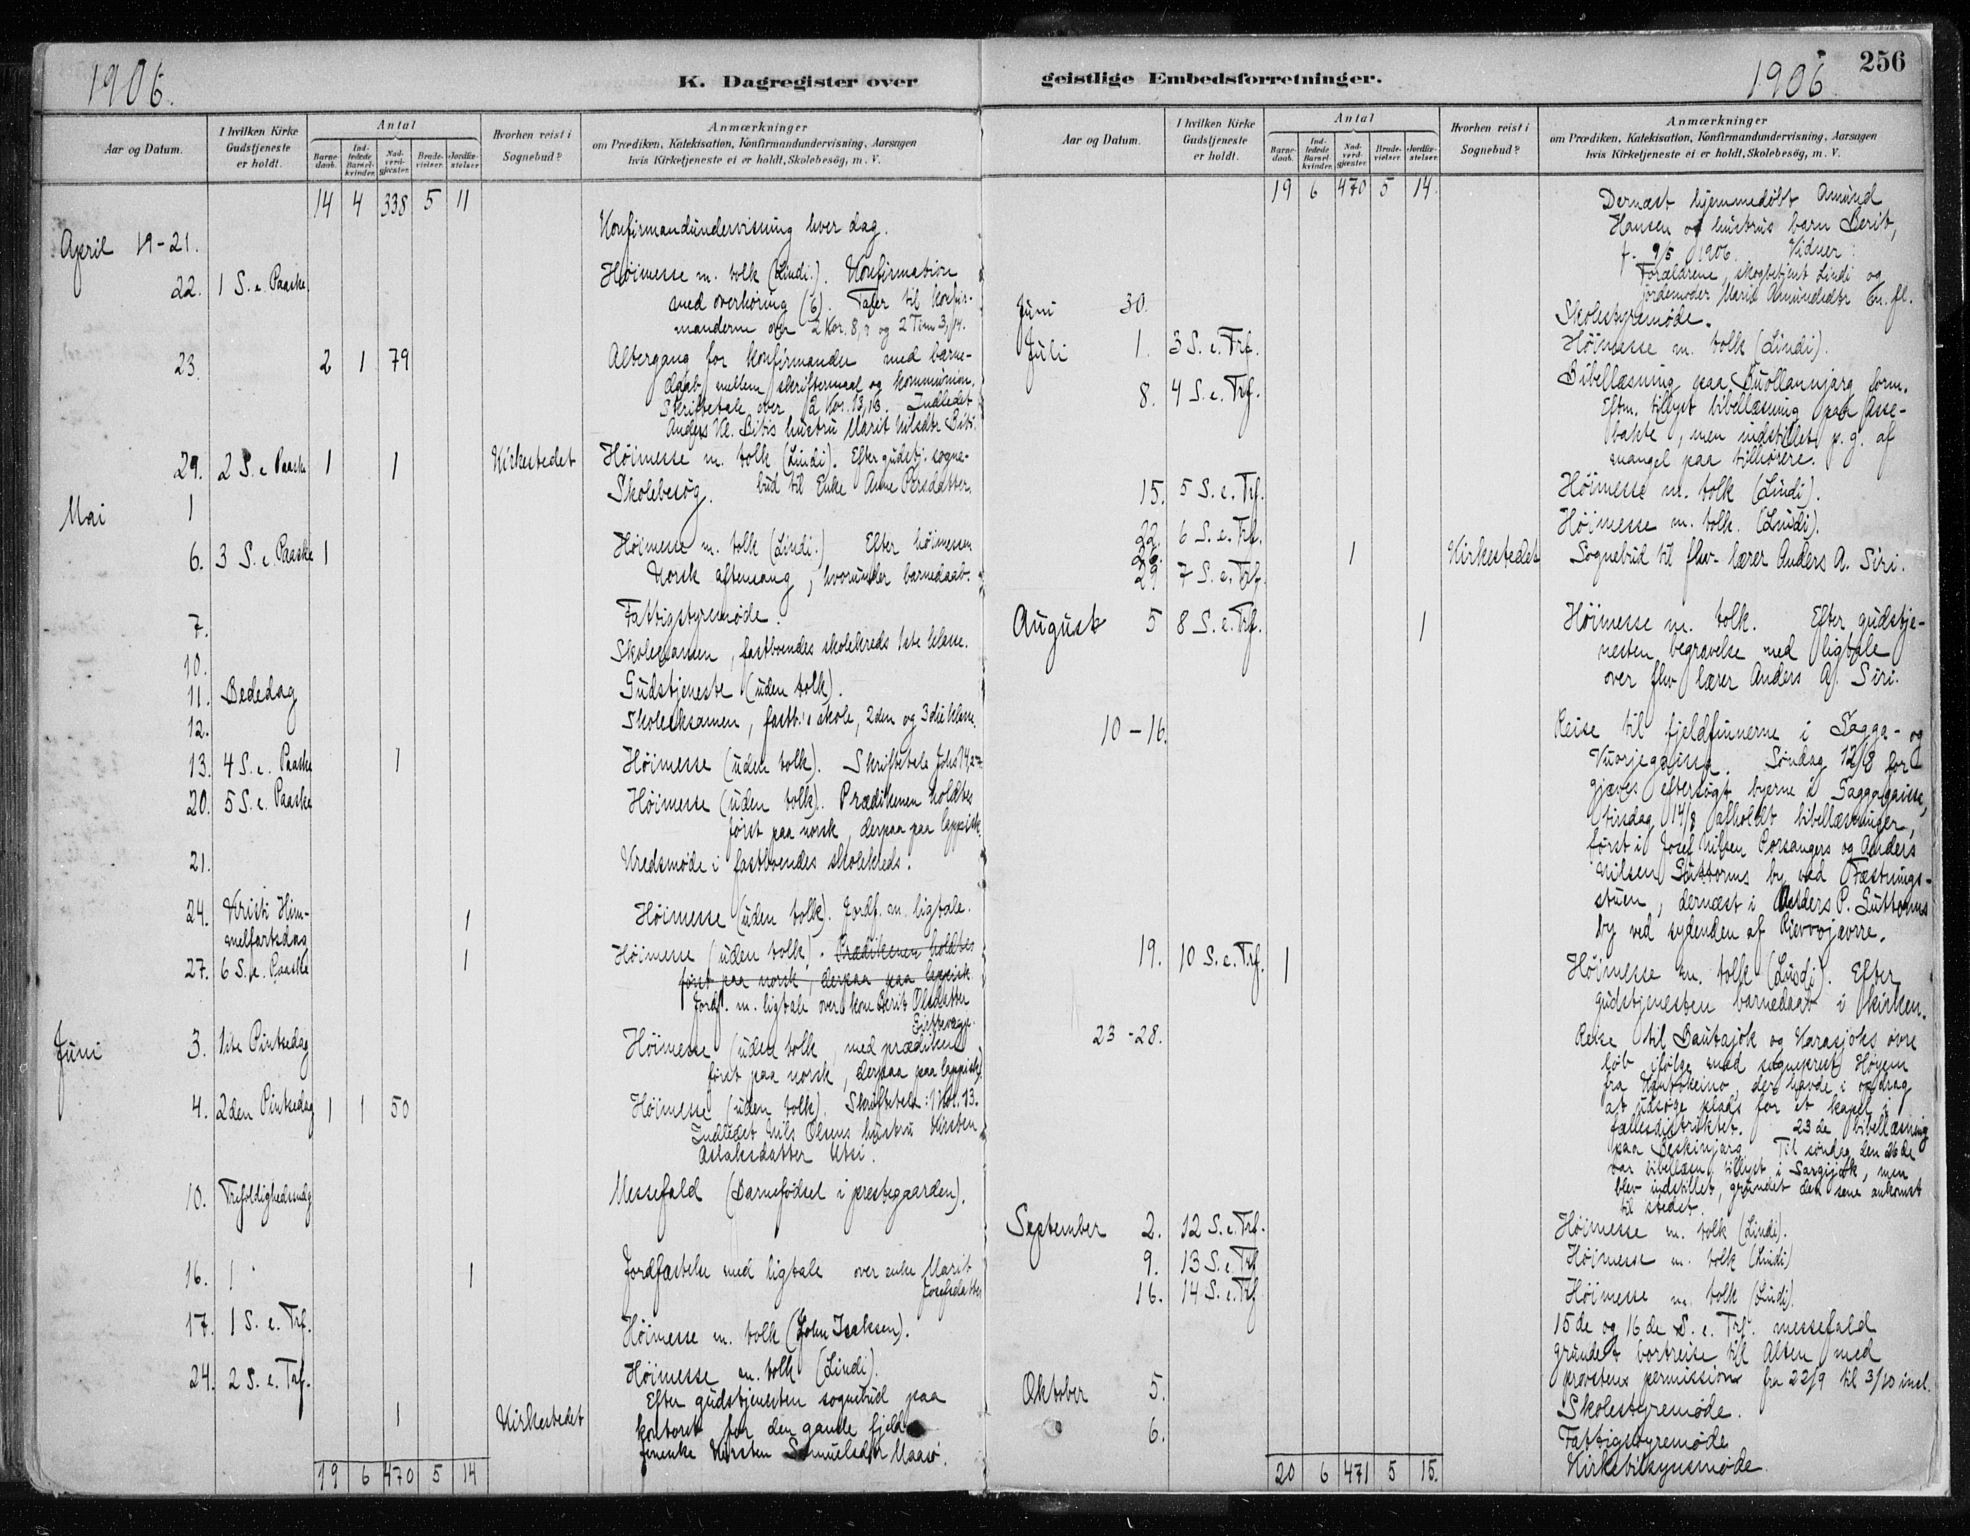 1906.
K. Dagregister over
Aar og Datum.
I hvilken Kirke Gudstjeneste er holdt.
Antal
Barne-daab.
Ind-ledede Barsel-kvinder.
Nad-verd-gjæster.
Brude-vielser.
Jordfæ-stelser.
Hvorhen reist i Sognebud?
Anmærkninger
om Prædiken, Katekisation, Konfirmandundervisning, Aarsagen
hvis Kirketjeneste ei er holdt, Skolebesøg, m. V.
14 4 338 5 11
April 19-21. Konfirmandundervisning hver dag.
22. 1 S. e. Paaske Høimesse m. tolk (Lindi.). Konfirmation
med overhøring (6). Taler til konfir-
manderne over 2 Kor. 8,9 og 2 Tim 3,14.
23. 2 1 79 Altergang for konfirmander med barne-
daab mellem skriftemaal og kommunion.
Skriftetale over 2 Kor. 13,13. Indledet
Anders Kl. Bitis hustru Marit Nilsdtr Biti.
29. 2 S. e. Paaske 1 1 Kirkestedet Høimesse m. tolk (Lindi). Efter gudstj. sogne-
bud til Enke Anne Persdatter.
Mai 1 Skolebesøg.
6. 3 S. e. Paaske 1 Høimesse m. tolk (Lindi.) Efter høimessen
Norsk aftensang, hvorunder barnedaab.
7. Fattigstyremøde.
10. Skolexamen, fastboendes skolekreds 1ste klasse.
11. Bededag Gudstjeneste (uden tolk).
12. Skoleeksamen, fastb.'s skole, 2den og 3die klasse.
13. 4 S. e. Paaske 1 Høimesse (uden tolk). Skriftetale Johs 14,27
20. 5 S. e. Paaske Høimesse (uden tolk). Prædikenen holdtes
først paa norsk, derpaa paa lappisk.
21. Kredsmøde i fastboendes skolekreds.
24. Kristi Him-
melfartsdag 1 Høimesse (uden tolk). Jordf. m. ligtale.
27. 6 S. e. Paaske 1 Høimesse (uden tolk). Prædikenen holdtes
først paa norsk, derpaa paa lappisk
Jordf. m. ligtale over kone Berit Olsdatter
Juni 3. 1ste Pintsedag Høimesse (uden tolk, med prædiken
først paa norsk, derpaa paa lappisk)
4. 2den Pintsedag 1 1 50 Høimesse (uden tolk). Skriftetale:
Indledet Nils Olsens hustru Kirsten
Aslaksdatter Utsi.
10. Trefoldighedsdag Messefald (Barnefødsel i prestegaarden).
16. 1 Jordfæstelse med ligtale over enke Marit
Josefsdatter
17. 1 S. e. Trf. Høimesse m. tolk (John Isaksen).
24. 2 S. e. Trf. Høimesse m. tolk (Lindi).
Efter gudstjenesten sognebud paa
1 Kirkestedet kontoret for den gamle fjeld-
finenke Kirsten Samuelsdtr Maasø.
19 6 470 5 14
geistlige Embedsforretninger.
1906
256
Aar og Datum.
I hvilken Kirke Gudstjeneste er holdt.
Antal
Barne-daab.
Ind-ledede Barsel-kvinder.
Nad-verd-gjæster.
Brude-vielser.
Jordfæ-stelser.
Hvorhen reist i Sognebud?
Anmærkninger
om Prædiken, Katekisation, Konfirmandundervisning, Aarsagen
hvis Kirketjeneste ei er holdt, Skolebesøg, m. V.
19 6 470 5 14.
Dernæst hjemmedøbt Amund
Hansen og hustrus barn Berit,
f. 9/5 1906. Vidner:
Forældrene, skogbetjent Lindi og
jordemoder Marie Amundsdtr
Juni 30. Skolestyremøde.
Juli 1. 3 S. e. Trf. Høimesse m. tolk (Lindi).
8. 4 S. e. Trf. Bibellæsning paa Buollannjarg form.
Eftm. tillyst bibellæsning paa Asse-
bakte, men indstillet p. g. af
mangel paa tilhørere.
15. 5 S. e. Trf. Høimesse m. tolk (Lindi).
22. 6 S. e. Trf. Høimesse m. tolk. (Lindi).
1 Kirkestedet Sognebud til fhv. lærer Anders A. Siri.
29 7 S. e. Trf.
August 5 8 S. e. Trf. 1 Høimesse m. tolk. Efter gudstje-
nesten begravelse med ligtale
over fhv lærer Anders A. Siri.
10-16. Reise til fjeldfinnerne i Gagga- og
Vuorjegaissa. Søndag 12/8 for-
gjæves eftersøgt byerne i Gaggagaisse,
tirsdag 14/8 afholdt bibellæsninger,
først i Josef Nilsen Porsangers og Anders
Nilsen Guttorms by ved Fæstnings-
stuen, dernæst i Anders P. Guttorms
by ved sydenden af
19. 10 S. e. Trf. 1 Høimesse m. tolk (Lindi). Efter
gudstjenesten barnedaab i kirken.
23-28. Reise til Bautajok og Karasjoks øvre
løb ifølge med sogneprest Høyem
fra Kautokeino, der havde i opdrag
at udsøge plads for et kapel i
fællesdistriktet. 23de bibellæsning
paa Beskinjarg. Til søndag den 26de
var bibellæsn. tillyst i Sargijok, men
blev indstillet, grundet den sene ankomst
til stedet.
September 2. 12 S. e. Trf. Høimesse m. tolk (Lindi).
9. 13 S. e. Trf Høimesse m. tolk (Lindi)
16. 14 S. e. Trf Høimesse m. tolk (Lindi).
15de og 16de S. e. Trf. messefald
grundet bortreise til Alten med
provstens permission fra 22/9 til 3/10 incl.
Oktober 5. Skolestyremøde.
6. Fattigstyremøde
Kirketilsynsmøde.
20 6 471 5 15.